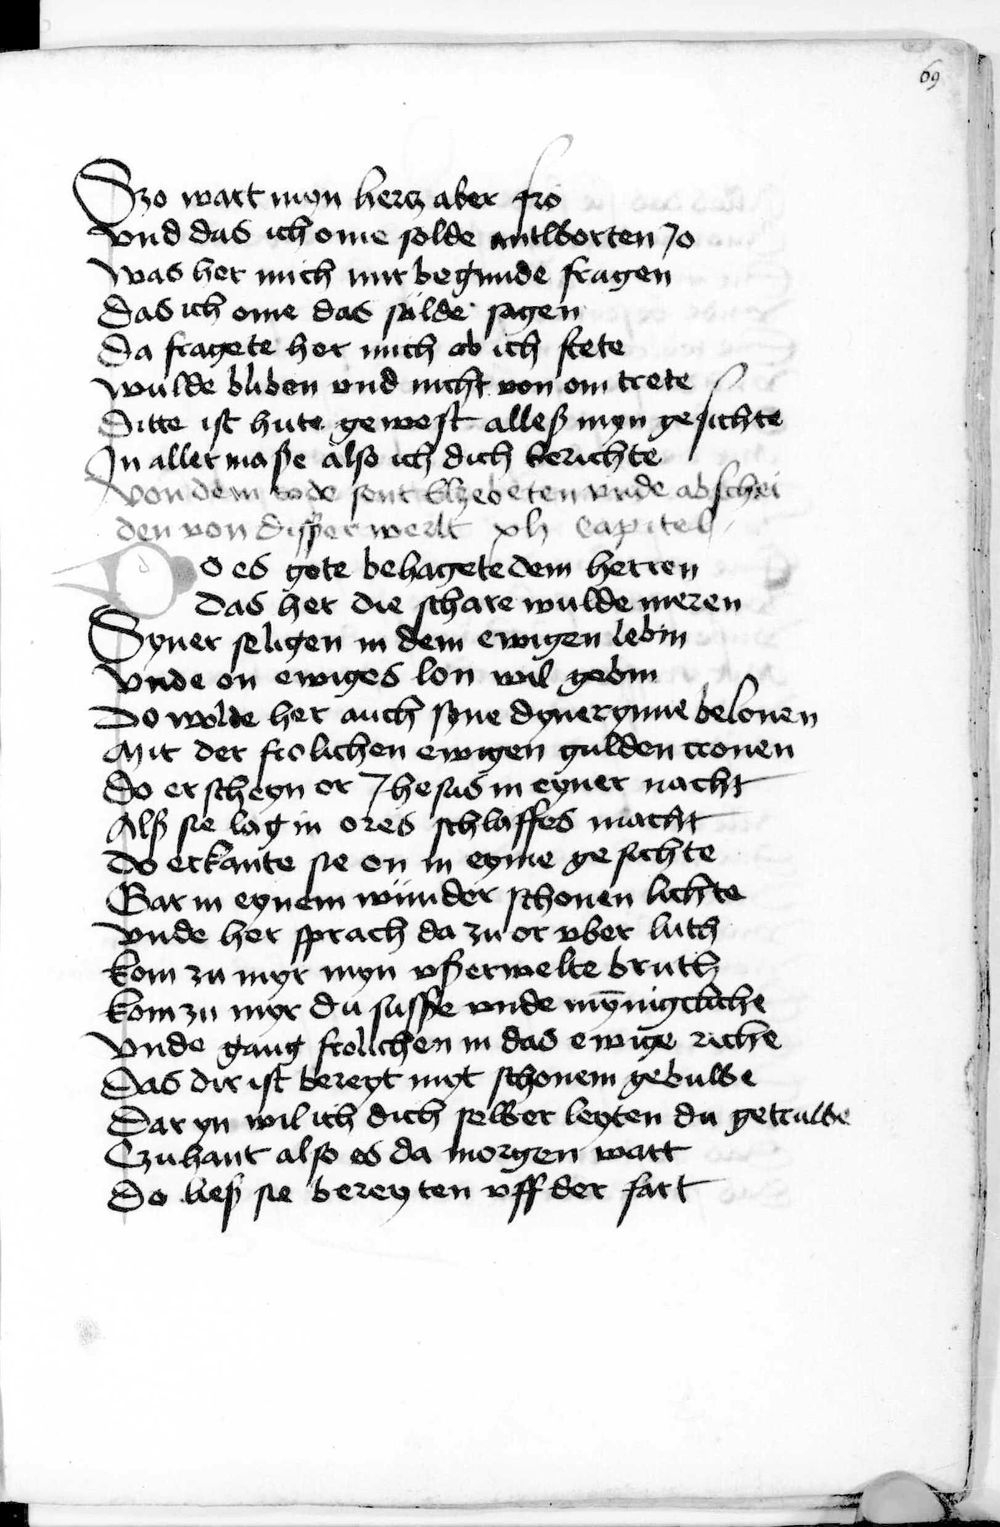 69
Szo wart myn hercz aber fro
Vnd das ich ome solde antworten jo
Was her mich nur begunde fragen
Das ich ome das sulde sagen
Da fragete her mich ab ich stete
Wulde bliben vnd nicht von om trete
Ditte ist hute gewest alleß myn gesichte
In aller maße also ich dich berichte
Von dem tode sent Elzebeten vnde abschei
den von disser werlt xli Capitel
Do es gote behagete dem herren
Das her die schare wulde meren
Syner seligen in dem ewigen lebin
Vnde on ewiges lon wil gebin
Do wolde her auch syne dynerynne belonen
Mit der frolichen ewigen gulden cronen
Do erscheyn or Jhesus in eyner nacht
Alß sie lag in ores schlaffes macht
Do erkante sie on in eyme gesichte
Gar in eynem wunder schonen lichte
Vnde her sprach da zu or vber luth
Kom zu myr myn vßerwelte bruth
Kom zu myr du susse vnde mȳnigcliche
Vnde gang frolichen in das ewige riche
Das dir ist bereyt myt schonem gebuwe
Dar yn wil ich dich selber leyten du getruwe
Czuhant also es da morgen wart
Do ließ sie bereyten vff der fart